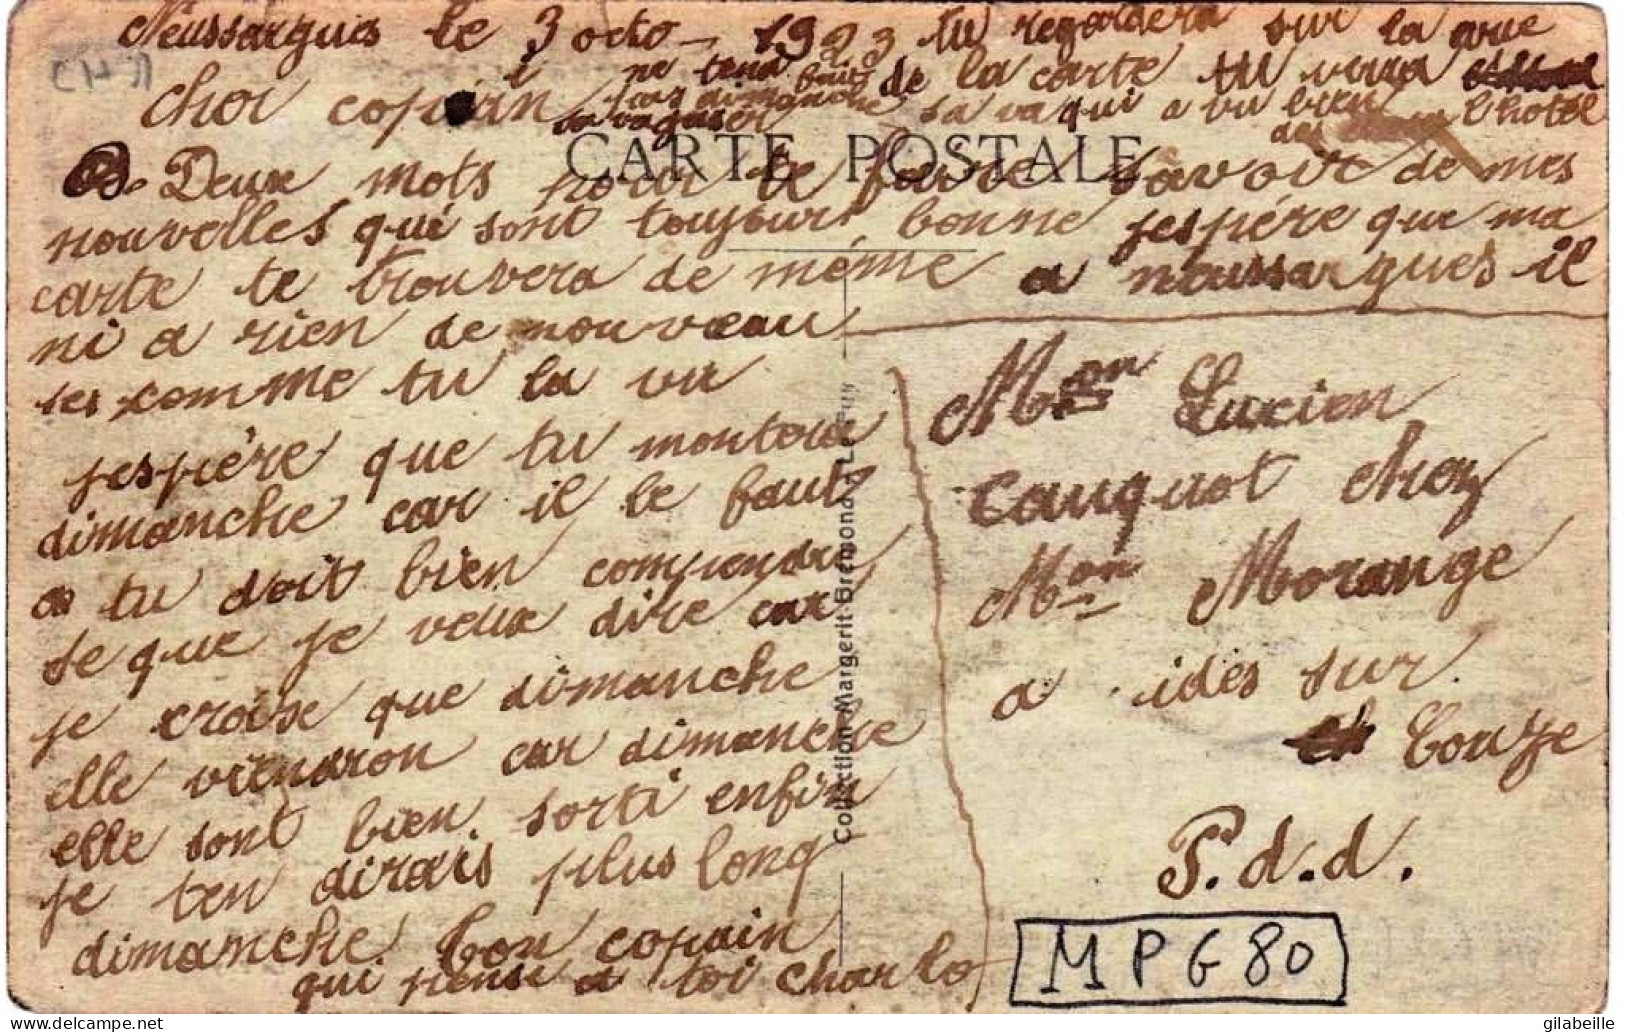 Neussargues le 3 octo - 1923 tu regardera sur la grue
de la carte tu vera
cher copain ne tena
pas dimanche sa va qui a vu bien l'hotel
CARTE POSTALE
Deux mots pour te faire savoir de mes
nouvelles qui sont toujours bonne jespére que ma
carte te trouvera de méme a neussargues il
ni a rien de nouveau
ses comme tu la vu
jespère que tu montera
dimanche car il le faut
tu doit bien comprendre
se que je veux dire car
je croise que dimanche
elle viendron car dimanche
elle sont bien sorti enfin
je ten dirais plus long
dimanche Ton copain
qui pense a toi charlo
Collection Margerit-Brémond, Le Puy
Mon Lucien
Cauquot chez
Mon Morange
a ides sur
Couze
P.d.d.
MPG80
gilabeille